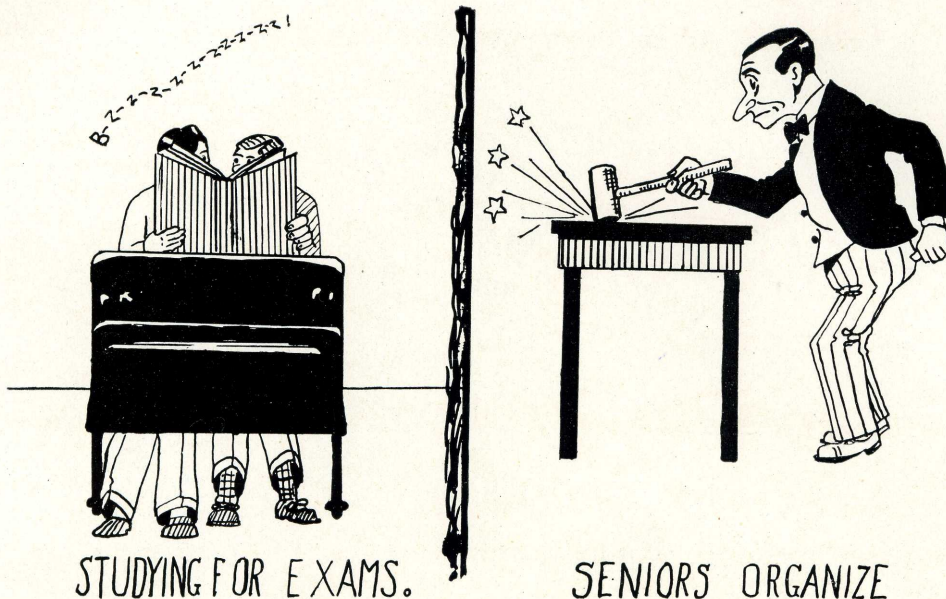 B-z-z-z-z-z-z-z-z-z-z-z!
STUDYING FOR EXAMS.
SENIORS ORGANIZE